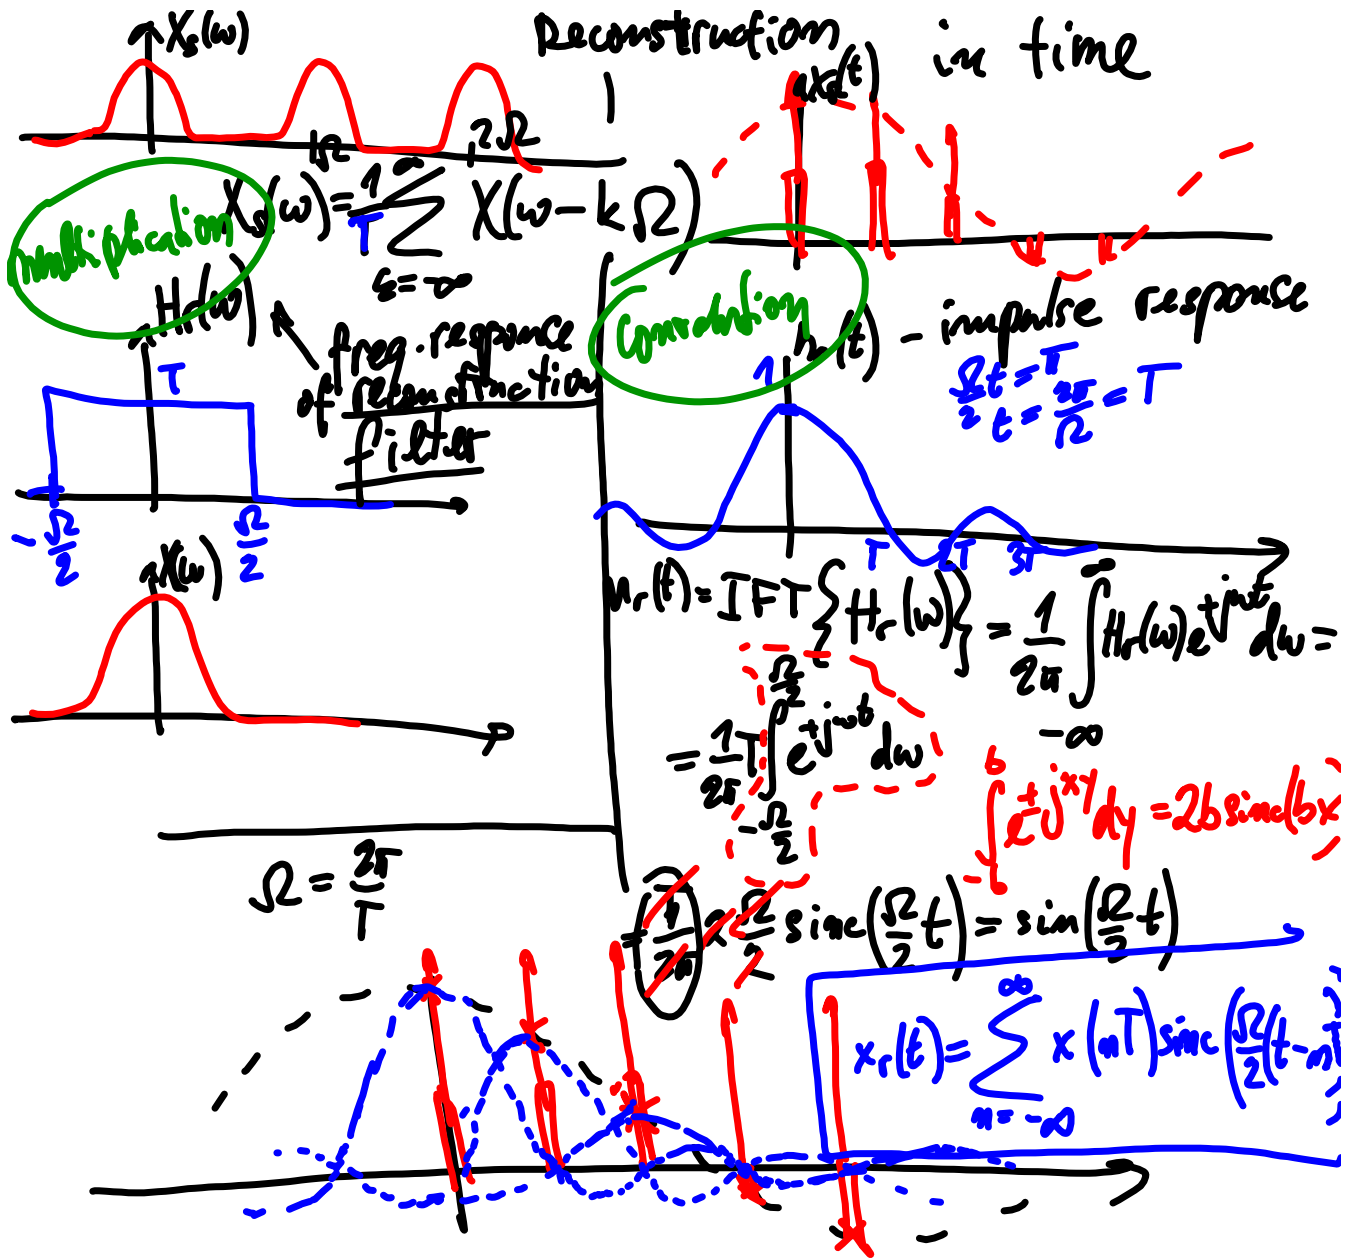 Reconstruction in time
X_s(ω)
Ω
2Ω
X_s(ω) = 1/T ∑_{k=-∞}^{∞} X(ω - kΩ)
multiplication
H_r(ω)
freq. response
of reconstruction
filter
T
-Ω/2
Ω/2
X(ω)
Ω = 2π/T
x_s(t)
Convolution
h_r(t) - impulse response
1
Ω/2 t = π
t = 2π/Ω = T
T 2T 3T
h_r(t) = IFT {H_r(ω)} = 1/2π ∫_{-∞}^{∞} H_r(ω) e^{+jωt} dω =
= 1/2π T ∫_{-Ω/2}^{Ω/2} e^{+jωt} dω
∫_{-b}^{b} e^{±jxy} dy = 2b sinc(bx)
sinc(Ω/2 t) = sin(Ω/2 t)
x_r(t) = ∑_{n=-∞}^{∞} x(nT) sinc(Ω/2 (t - n